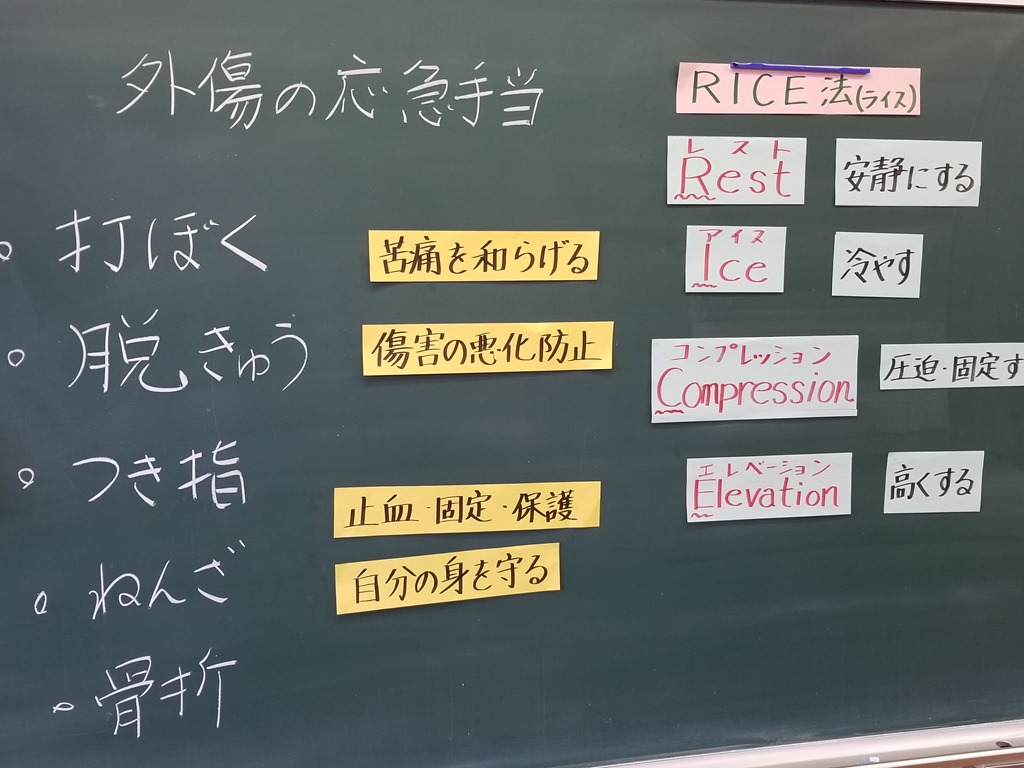 外傷の応急手当
・打ぼく
・脱きゅう
・つき指
・ねんざ
・骨折
苦痛を和らげる
傷害の悪化防止
止血・固定・保護
自分の身を守る
RICE法(ライス)
レスト
Rest
安静にする
アイス
Ice
冷やす
コンプレッション
Compression
圧迫・固定す
エレベーション
Elevation
高くする